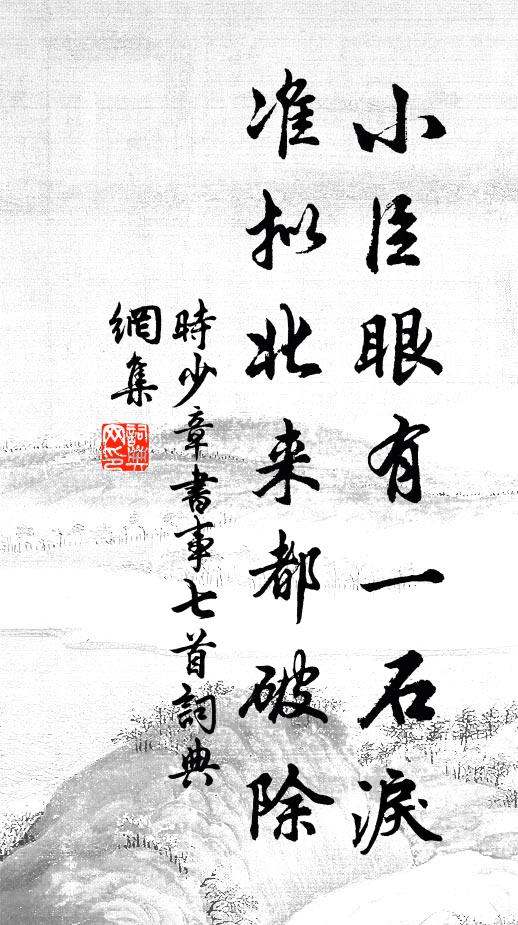 小臣眼有一石淚
准拟北来都破除
時少章書事七首詞典
網集